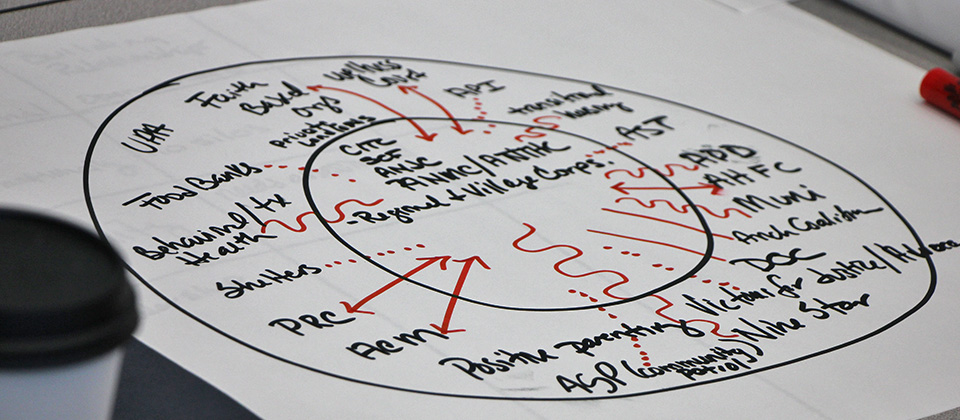 UAA
Faith
Based
Orgs
Wellness
Covid
API
transitional
housing
private
landlords
AST
CITC
SCF
ANJC
ANMC/ANTHC
- Regional + Village Corps.
Food Banks
APD
AHFC
Muni
Behavioral/tx
Health
Anch Coalition
Shelters
DOC
PRC
ACMH
Victims for Justice/
Positive parenting
Nine Star
ASP (community
patrol)